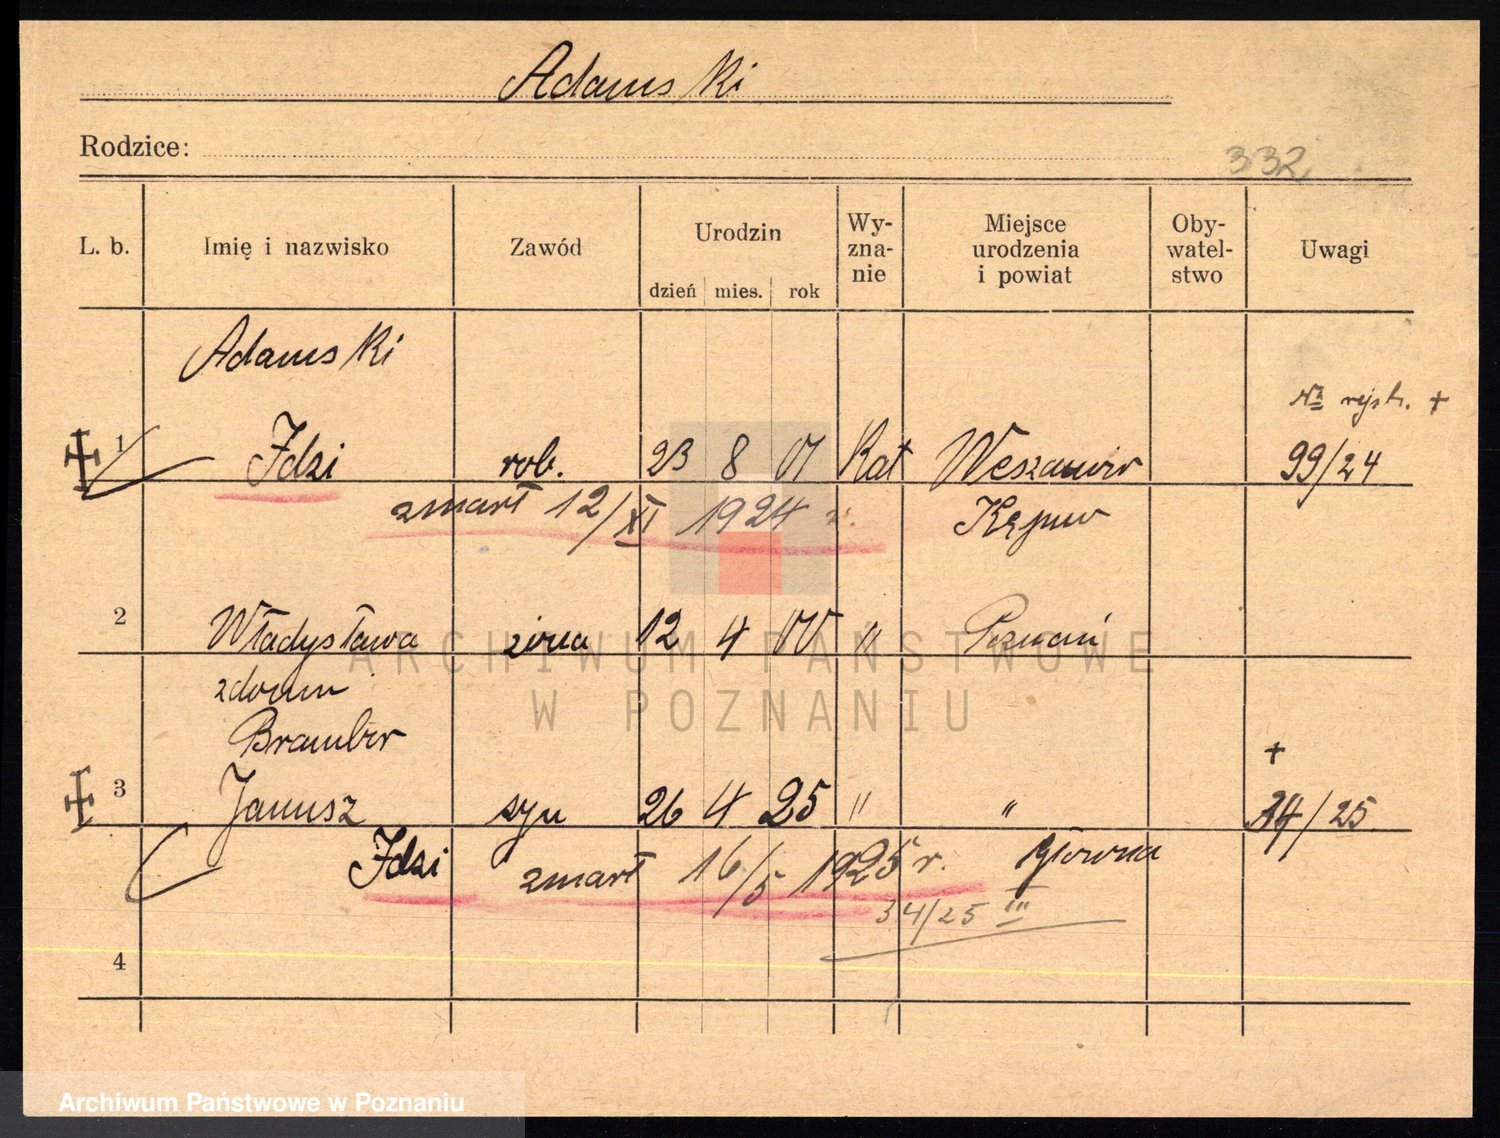 Adamski
Rodzice:
332
L. b. Imię i nazwisko Zawód Urodzin dzień mies. rok Wy-zna-nie Miejsce urodzenia i powiat Oby-watel-stwo Uwagi
Adamski
№ rejstr. +
1 Idzi rob. 23 8 01 Kat 99/24
zmarł 12/XI 1924 r. Kępno
2 Władysława żona 12 4 00 " Poznań
z domu
Brambor
+
3 Janusz syn 26 4 25 " " 34/25
Idzi zmarł 16/5 1925 r. Główna
34/25 III
4
ARCHIWUM PAŃSTWOWE
W POZNANIU
Archiwum Państwowe w Poznaniu